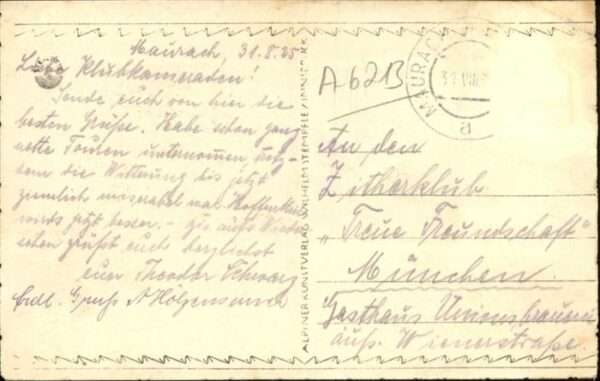 Maurach, 31.8.25
Liebe Klubkameraden!
Sende euch von hier die
besten Grüße. Habe schon ganz
nette Touren unternomen, trotz-
dem die Witterung bis jetzt
ziemlich miserabel war. Hoffentlich
wirds jetzt besser. –
schen grüßt euch herzlichst
euer Theodor Schwarz
Erdl. Gruß
ALPINER KUNSTVERLAG WILHELM STEMPFLE / INNSBRUCK
A621B
MAURACH
31.VIII.
a
An den
Zitherklub
„Treue Freundschaft"
München.
Gasthaus Unionsbrauerei
äuß. Wienerstraße.